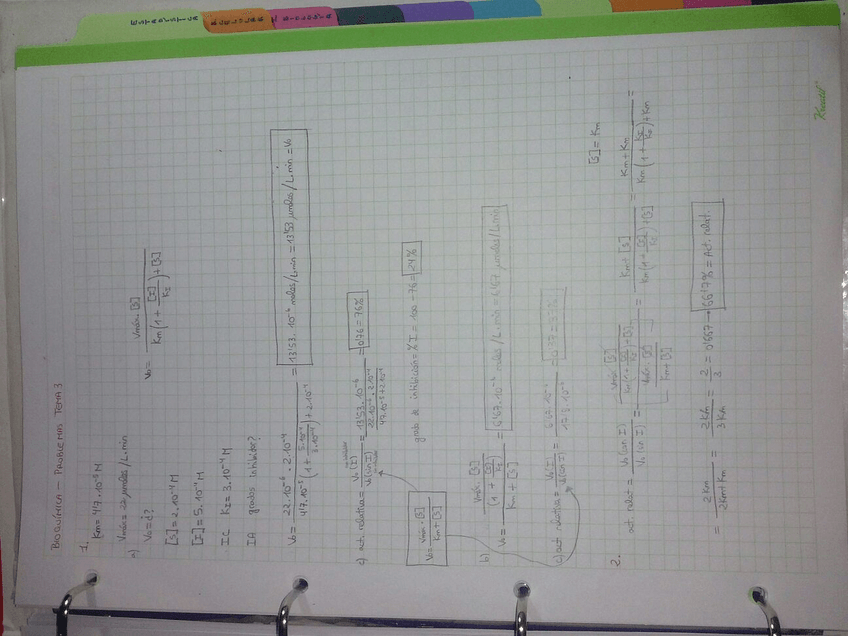 ESTADÍSTICA
BIOQUÍMICA - PROBLEMAS TEMA 3
1.
Km = 4'7·10⁻⁵ M
Vmáx = 22 μmoles/L·min
a)
V₀ = ¿?
V₀ = Vmáx·[S] / (Km(1 + [I]/KI) + [S])
[S] = 2·10⁻⁴ M
[I] = 5·10⁻⁴ M
IC KI = 3·10⁻⁴ M
IA grados inhibidor?
V₀ = 22·10⁻⁶ · 2·10⁻⁴ / (4'7·10⁻⁵ (1 + 5·10⁻⁴/3·10⁻⁴) + 2·10⁻⁴) = 13'53·10⁻⁶ moles/L·min = 13'53 μmoles/L·min = V₀
c) act. relativa = V₀(I) / V₀(sin I) = 13'53·10⁻⁶ / (22·10⁻⁶·2·10⁻⁴ / 4'7·10⁻⁵+2·10⁻⁴) = 0'76 = 76%
V₀ = Vmáx·[S] / Km+[S]
grado de inhibición = %I = 100 - 76 = 24%
b)
V₀ = (Vmáx·[S] / (1 + [I]/KI)) / (Km + [S]) = 6'67·10⁻⁶ moles/L·min = 6'67 μmoles/L·min
c) act. relativa = V₀(I) / V₀(sin I)
2.
[S] = Km
act. relat = V₀(con I) / V₀(sin I) = (Vmáx·[S] / Km(1+[I]/KI)+[S]) / (Vmáx·[S] / Km+[S]) = Km+[S] / (Km(1+[I]/KI)+[S]) = Km+Km / (Km(1+[I]/KI)+Km) =
= 2Km / 2Km+Km = 2Km / 3Km = 2/3 = 0'667 → 66'7% = Act. relat.